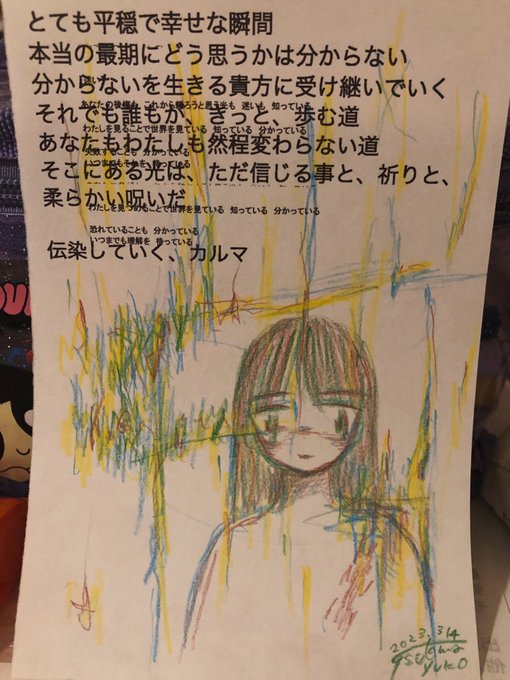 とても平穏で幸せな瞬間
本当の最期にどう思うかは分からない
分からないを生きる貴方に受け継いでいく
あなたの後悔も これから頼ろうと思う光も 迷いも 知っている
それでも誰もが、きっと、歩む道
わたしを見ることで世界を見ている 知っている 分かっている
あなたもわたしも然程変わらない道
失敗することも 分かっている
いつまでもそれを 待っている
そこにある光は、ただ信じる事と、祈りと、
柔らかい呪いだ
わたしを見つめることで世界を見ている 知っている 分かっている
恐れていることも 分かっている
いつまでも理解を 待っている
伝染していく、カルマ
2023.3/4
YUKO